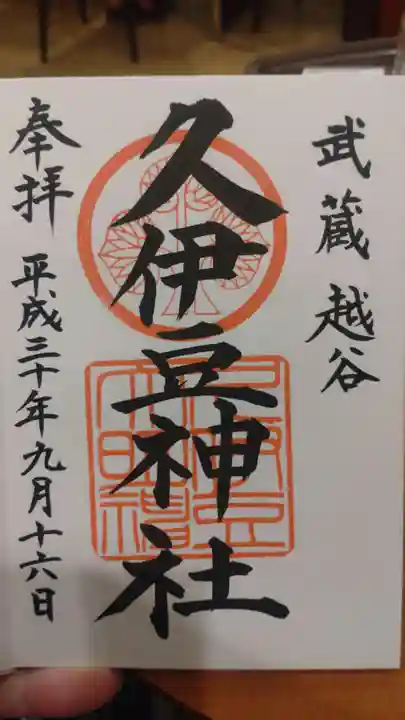 武蔵越谷
久伊豆神社
奉拝 平成三十年九月十六日